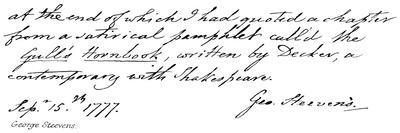 at the end of which I had quoted a chapter
from a satirical pamphlet call'd the
Gull's Hornbook, written by Decker, a
contemporary with Shakespeare.
Geo. Steevens.
Sep.r 15.th 1777.
George Steevens